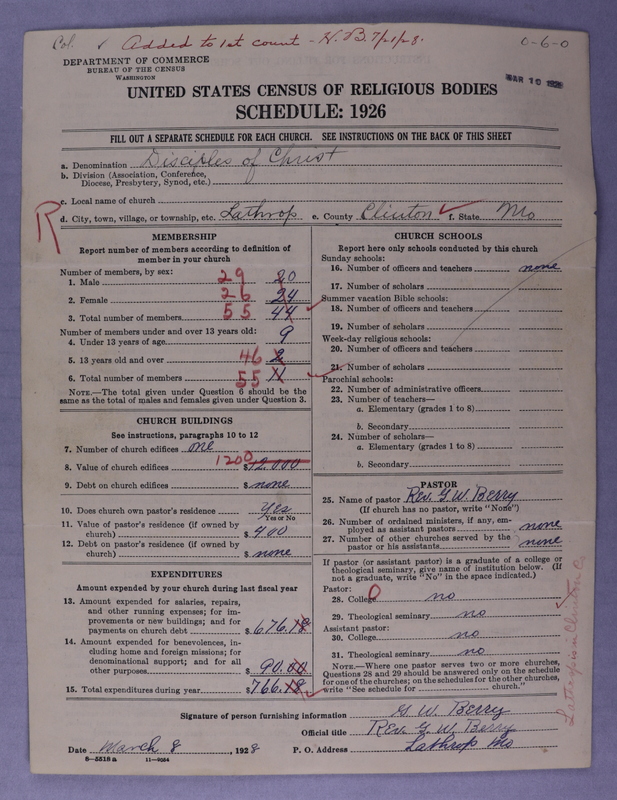 Col. ✓ Added to 1st count - H.B. 7/21/28.
0-6-0
DEPARTMENT OF COMMERCE
BUREAU OF THE CENSUS
WASHINGTON
MAR 10 1928
UNITED STATES CENSUS OF RELIGIOUS BODIES
SCHEDULE: 1926
FILL OUT A SEPARATE SCHEDULE FOR EACH CHURCH. SEE INSTRUCTIONS ON THE BACK OF THIS SHEET
a. Denomination Disciples of Christ
b. Division (Association, Conference,
Diocese, Presbytery, Synod, etc.)
c. Local name of church
R d. City, town, village, or township, etc. Lathrop e. County Clinton ✓ f. State Mo
MEMBERSHIP
Report number of members according to definition of
member in your church
Number of members, by sex:
1. Male 29 20
2. Female 26 24
3. Total number of members 55 44 ✓
Number of members under and over 13 years old:
4. Under 13 years of age 9
5. 13 years old and over 46 2
6. Total number of members 55 11 ✓
NOTE.—The total given under Question 6 should be the
same as the total of males and females given under Question 3.
CHURCH BUILDINGS
See instructions, paragraphs 10 to 12
7. Number of church edifices one
8. Value of church edifices 1200 $12.000
9. Debt on church edifices $none
10. Does church own pastor's residence Yes
Yes or No
11. Value of pastor's residence (if owned by
church) $400
12. Debt on pastor's residence (if owned by
church) $none
EXPENDITURES
Amount expended by your church during last fiscal year
13. Amount expended for salaries, repairs,
and other running expenses; for im-
provements or new buildings; and for
payments on church debt $676.18
14. Amount expended for benevolences, in-
cluding home and foreign missions; for
denominational support; and for all
other purposes $90.00
15. Total expenditures during year $766.18 ✓
CHURCH SCHOOLS
Report here only schools conducted by this church
Sunday schools:
16. Number of officers and teachers none
17. Number of scholars
Summer vacation Bible schools:
18. Number of officers and teachers
19. Number of scholars
Week-day religious schools:
20. Number of officers and teachers
21. Number of scholars
Parochial schools:
22. Number of administrative officers
23. Number of teachers—
a. Elementary (grades 1 to 8)
b. Secondary
24. Number of scholars—
a. Elementary (grades 1 to 8)
b. Secondary
PASTOR
25. Name of pastor Rev. G. W. Berry
(If church has no pastor, write "None")
26. Number of ordained ministers, if any, em-
ployed as assistant pastors none
27. Number of other churches served by the
pastor or his assistants none
If pastor (or assistant pastor) is a graduate of a college or
theological seminary, give name of institution below. (If
not a graduate, write "No" in the space indicated.)
Pastor:
28. College 0 no ✓
29. Theological seminary no
Assistant pastor:
30. College no
31. Theological seminary no
NOTE.—Where one pastor serves two or more churches,
Questions 28 and 29 should be answered only on the schedule
for one of the churches; on the schedules for the other churches,
write "See schedule for church."
Signature of person furnishing information G. W. Berry
Official title Rev. G. W. Berry
Date March 8, 1928 P. O. Address Lathrop Mo
8-5518 a 11-9054